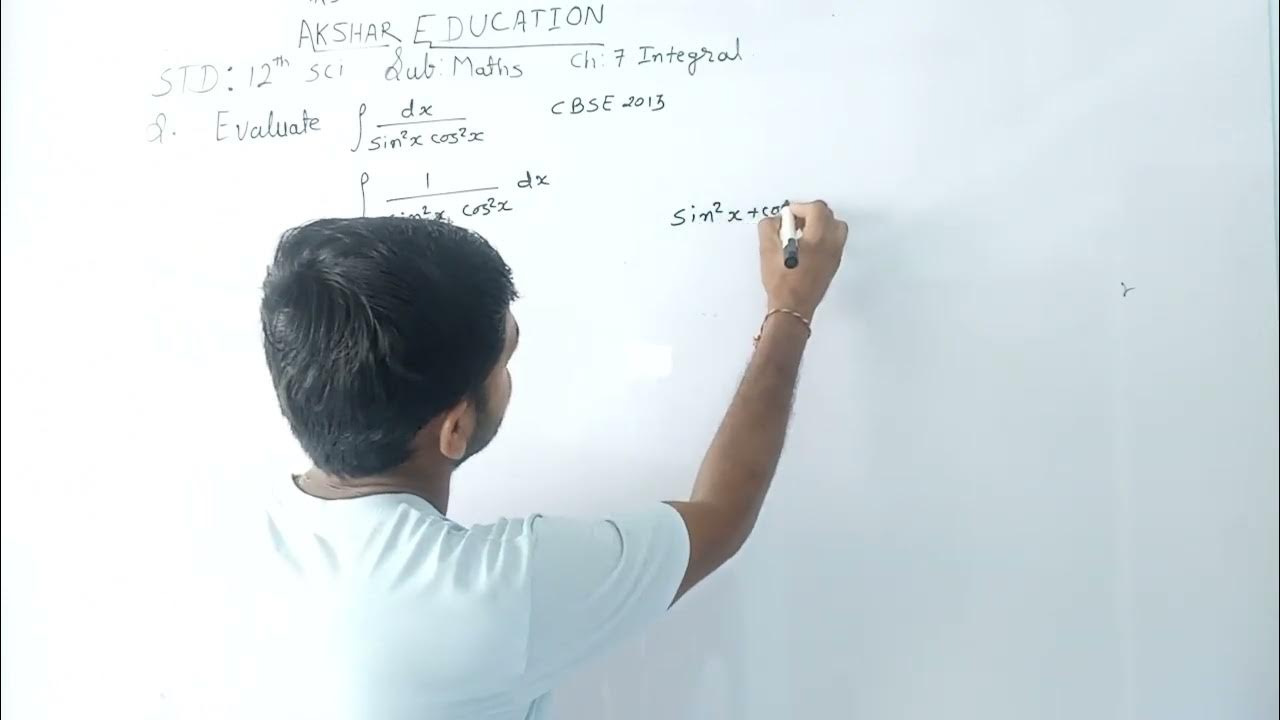 AKSHAR EDUCATION
STD: 12th sci Sub: Maths Ch: 7 Integral
Q. Evaluate ∫ dx / sin²x cos²x CBSE 2013
∫ 1 / sin²x cos²x dx
sin²x + co